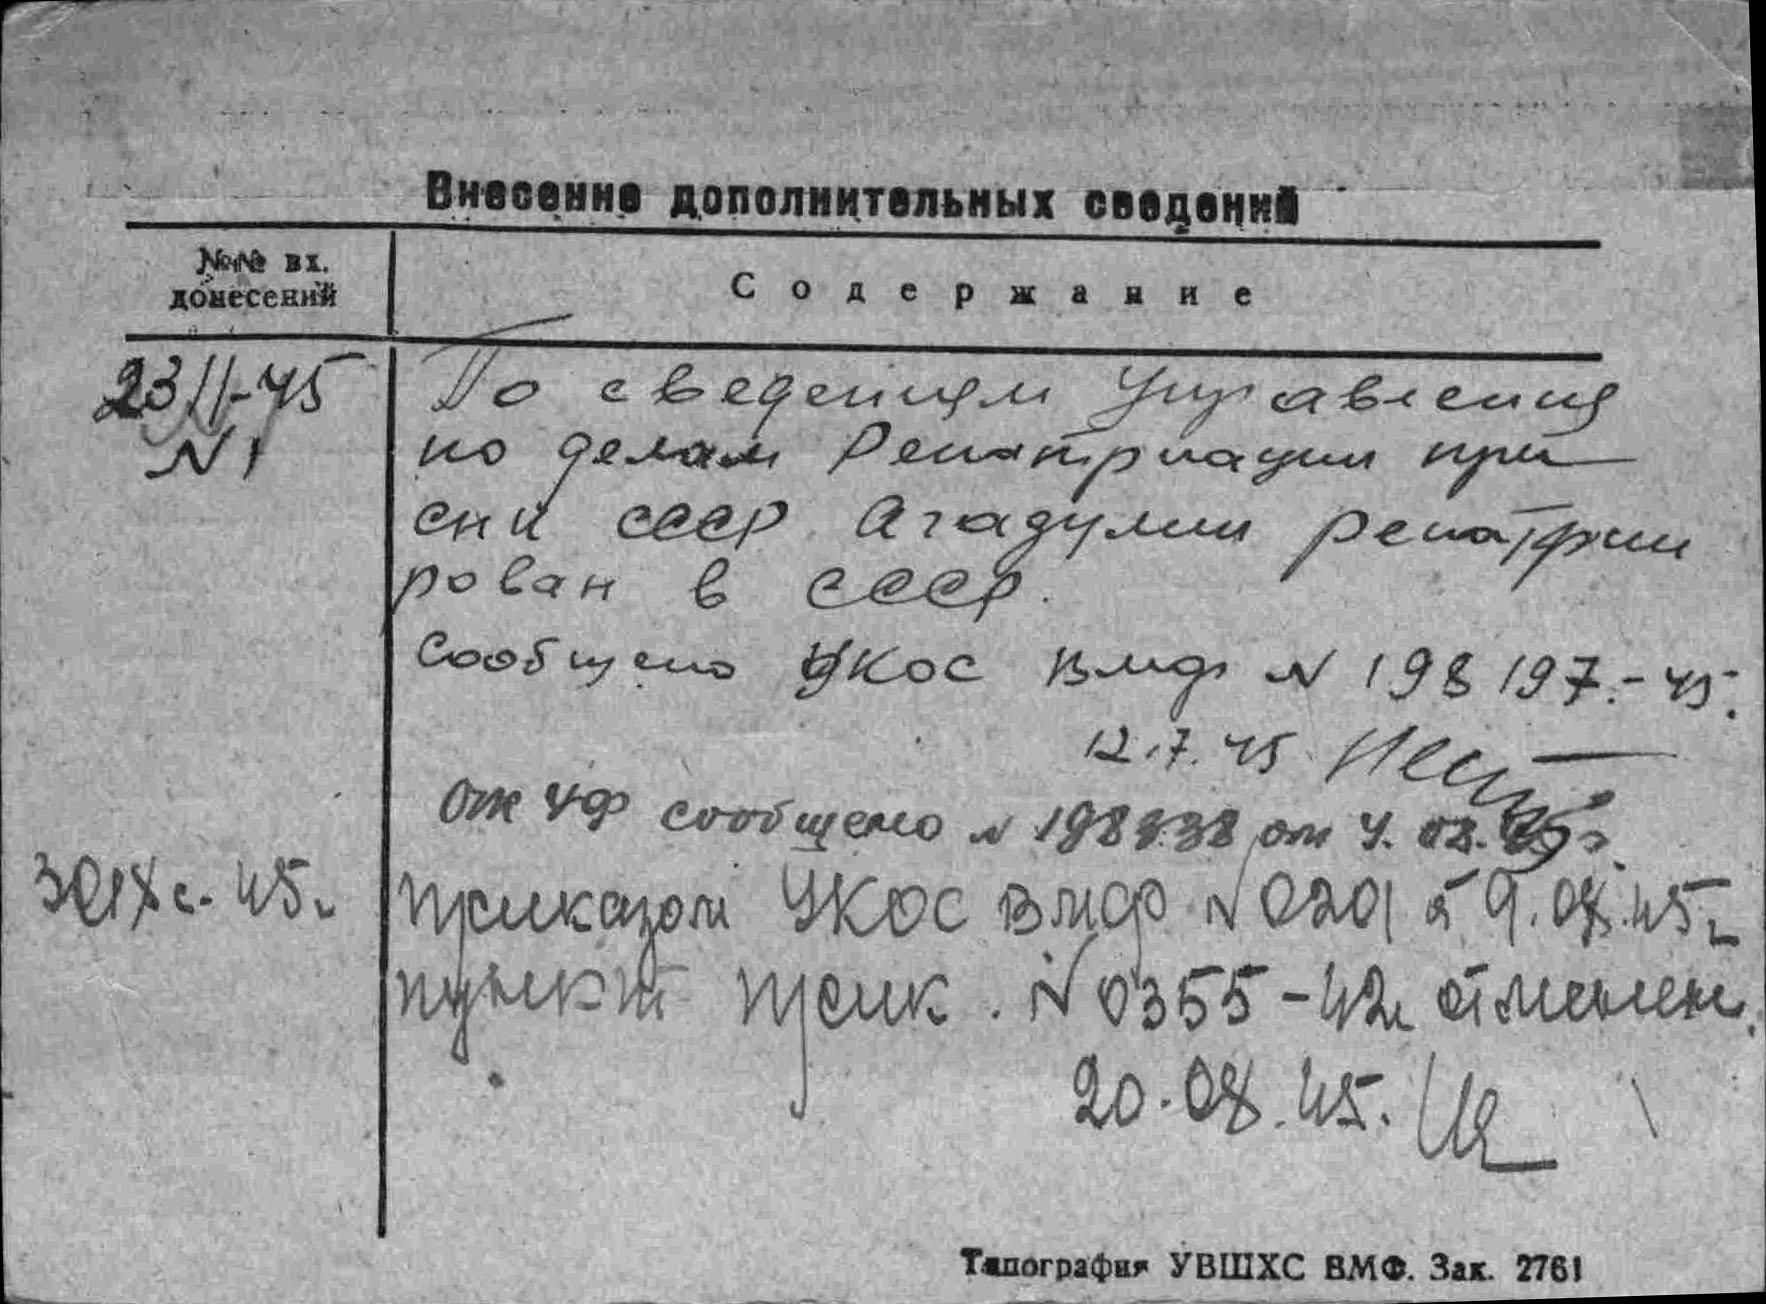 Внесение дополнительных сведений
№№ вх.
донесений
Содержание
23/II-45
N 1
По сведениям Управления
по делам Репатриации при
СНК СССР Агадулин репатрии
рован в СССР.
Сообщено УКОС ВМФ N 198197.-45.
12.7.45
ОК ЧФ сообщено N от 4. 08. 45 г.
45г.
Приказом УКОС ВМФ N 0201 от 9.08.45г
пункт прик. N 0355-42г отменен.
20.08.45.
Типография УВШХС ВМФ. Зак. 2761